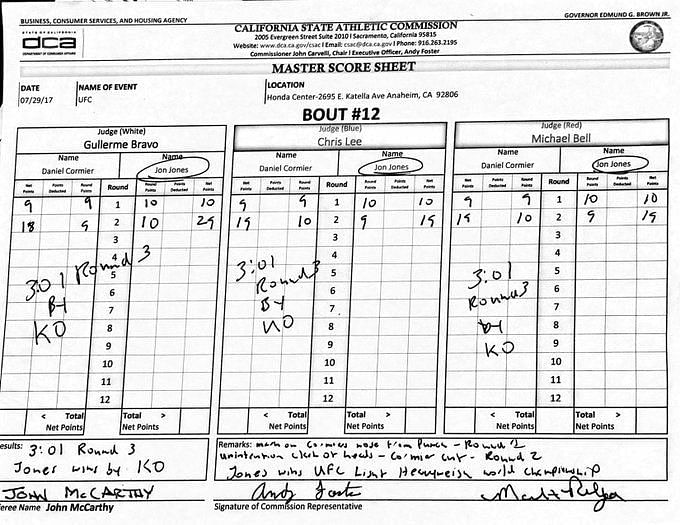 BUSINESS, CONSUMER SERVICES, AND HOUSING AGENCY
GOVERNOR EDMUND G. BROWN JR.
STATE OF CALIFORNIA
dca
DEPARTMENT OF CONSUMER AFFAIRS
CALIFORNIA STATE ATHLETIC COMMISSION
2005 Evergreen Street Suite 2010 | Sacramento, California 95815
Website: www.dca.ca.gov/csac | Email: csac@dca.ca.gov | Phone: 916.263.2195
Commissioner John Carvelli, Chair | Executive Officer, Andy Foster
MASTER SCORE SHEET
DATE NAME OF EVENT LOCATION
07/29/17 UFC Honda Center-2695 E. Katella Ave Anaheim, CA 92806
BOUT #12
Judge (White) Judge (Blue) Judge (Red)
Gullerme Bravo Chris Lee Michael Bell
Name Name Name Name Name Name
Daniel Cormier Jon Jones Daniel Cormier Jon Jones Daniel Cormier Jon Jones
Net Points Points Deducted Round Points Round Round Points Points Deducted Net Points Net Points Points Deducted Round Points Round Round Points Points Deducted Net Points Net Points Points Deducted Round Points Round Round Points Points Deducted Net Points
9 9 1 10 10 9 9 1 10 10 9 9 1 10 10
18 9 2 10 29 19 10 2 9 19 19 10 2 9 19
3 3 3
4 4 4
5 5 5
6 6 6
7 7 7
8 8 8
9 9 9
10 10 10
11 11 11
12 12 12
3:01 Round 3
By
KO
3:01
Round 3
By
KO
3:01
Round 3
by
KO
< Total Total > < Total Total > < Total Total >
Net Points Net Points Net Points Net Points Net Points Net Points
esults: 3:01 Round 3
Jones wins by KO
Remarks: mark on Cormiers nose from Punch - Round 1
unintention clash of heads - Cormier cut - Round 2
Jones wins UFC Light Heavyweight world championship
JOHN McCARTHY
feree Name John McCarthy
Andy Foster
Signature of Commission Representative